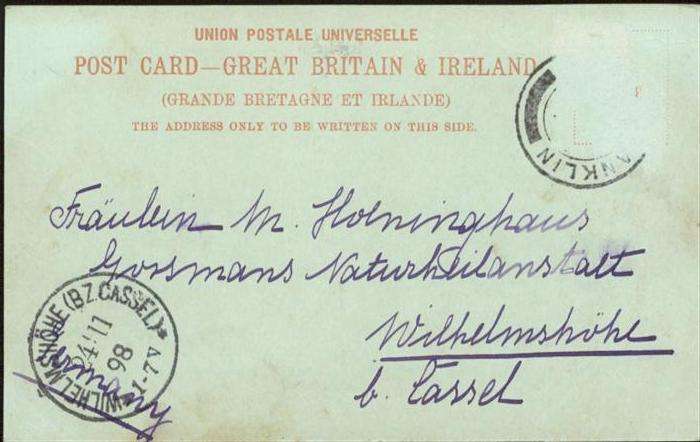 UNION POSTALE UNIVERSELLE
POST CARD—GREAT BRITAIN & IRELAND
(GRANDE BRETAGNE ET IRLANDE)
THE ADDRESS ONLY TO BE WRITTEN ON THIS SIDE.
ANKLIN
Fräulein M. Hoeninghaus
Gossmans Naturheilanstalt
Wilhelmshöhe
b. Cassel
Germany
WILHELMSHÖHE (BZ. CASSEL)
24 11
98
1-7V